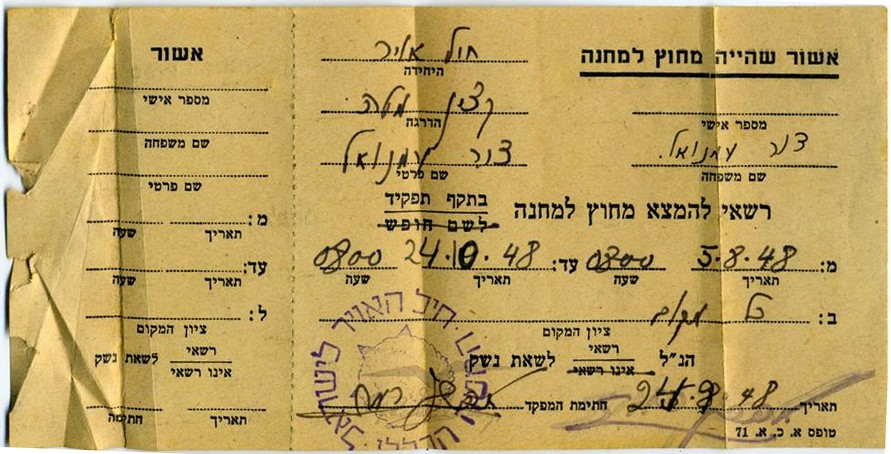 אשור שהייה מחוץ למחנה
מספר אישי
צור עמנואל
שם משפחה
חיל אויר
היחידה
קצין מטה
הדרגה
צור עמנואל
שם פרטי
רשאי להמצא מחוץ למחנה
בתקף תפקיד
לשם חופש
מ: 5.8.48 0800 עד: 24.10.48 0800
תאריך שעה תאריך שעה
ב: כל מקום
ציון המקום
הנ"ל רשאי לשאת נשק
אינו רשאי
תאריך 24.8.48 חתימת המפקד
טופס א. כ. א. 71
חיל האויר לישראל
אשור
מספר אישי
שם משפחה
שם פרטי
מ:
תאריך שעה
עד:
תאריך שעה
ל:
ציון המקום
רשאי לשאת נשק
אינו רשאי
תאריך חתימה